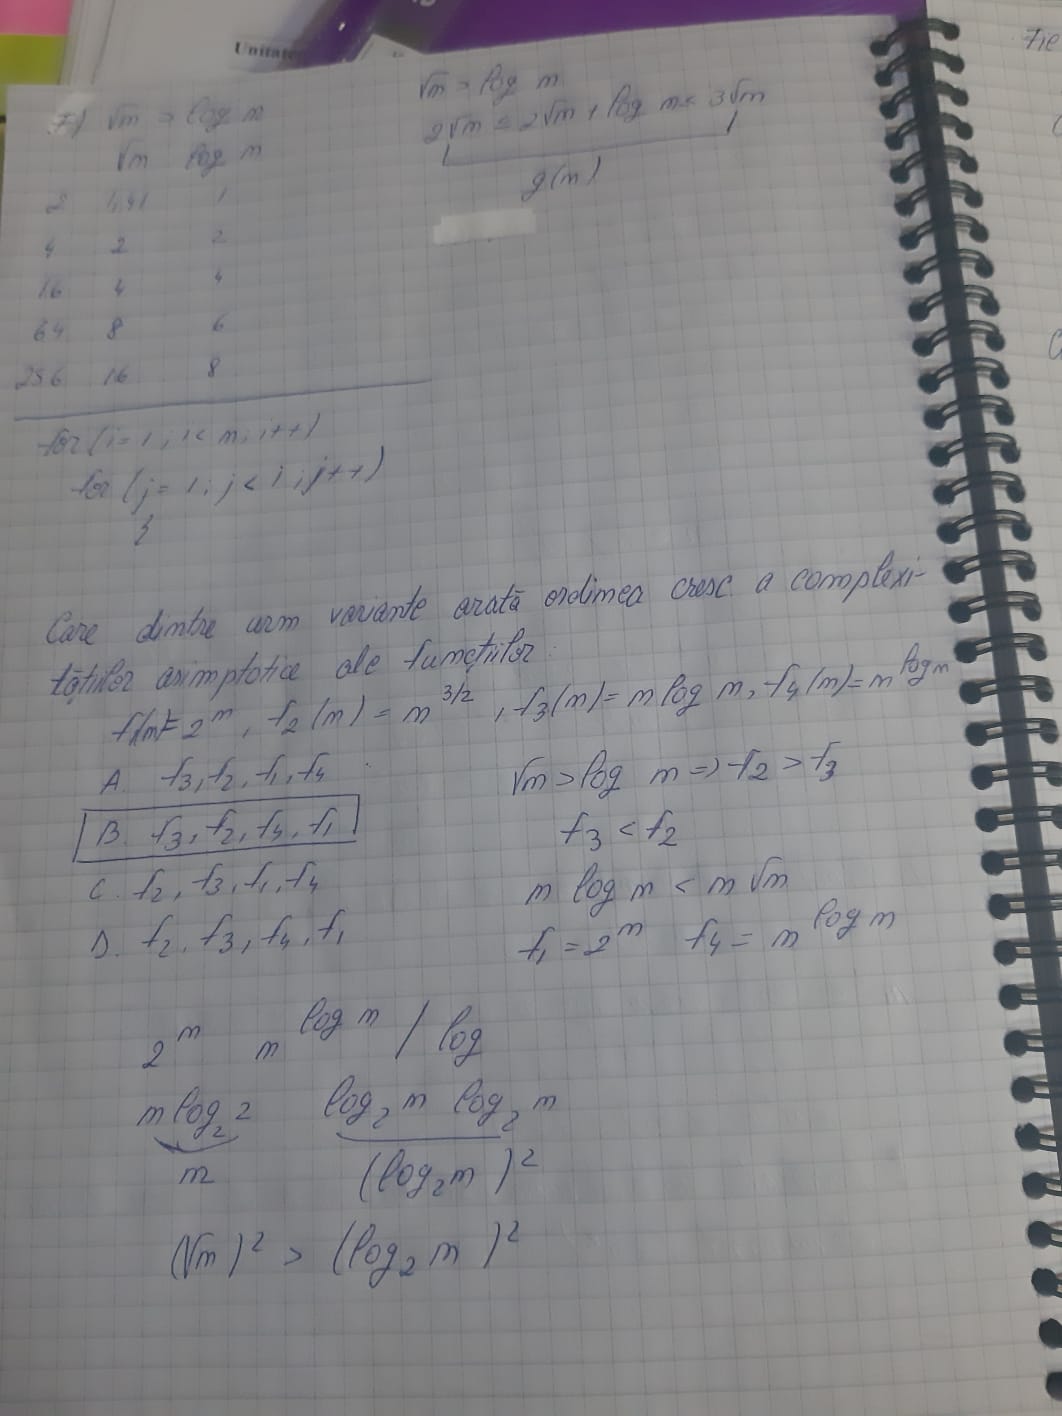 Unitate
7) √m > log m
√m log m
2 1,41 1
4 2 2
16 4 4
64 8 6
256 16 8
√m > log m
2√m ≤ 2√m + log m ≤ 3√m
g(m)
for (i= 1; i< m; i++)
for (j= 1; j< i; j++)
}
Care dintre urm variante arată ordinea cresc a complexi-
tăților asimptotice ale funcțiilor.
f₁(m)= 2^m, f₂(m) = m^3/2, f₃(m)= m log m, f₄(m)= m^log m
A. f₃, f₂, f₁, f₄
B. f₃, f₂, f₄, f₁
C. f₂, f₃, f₁, f₄
D. f₂, f₃, f₄, f₁
√m > log m => f₂ > f₃
f₃ < f₂
m log m < m √m
f₁ = 2^m f₄ = m^log m
2^m m^log m / log
m log₂ 2 log₂ m log₂ m
m (log₂ m)²
(√m)² > (log₂ m)²
Fie